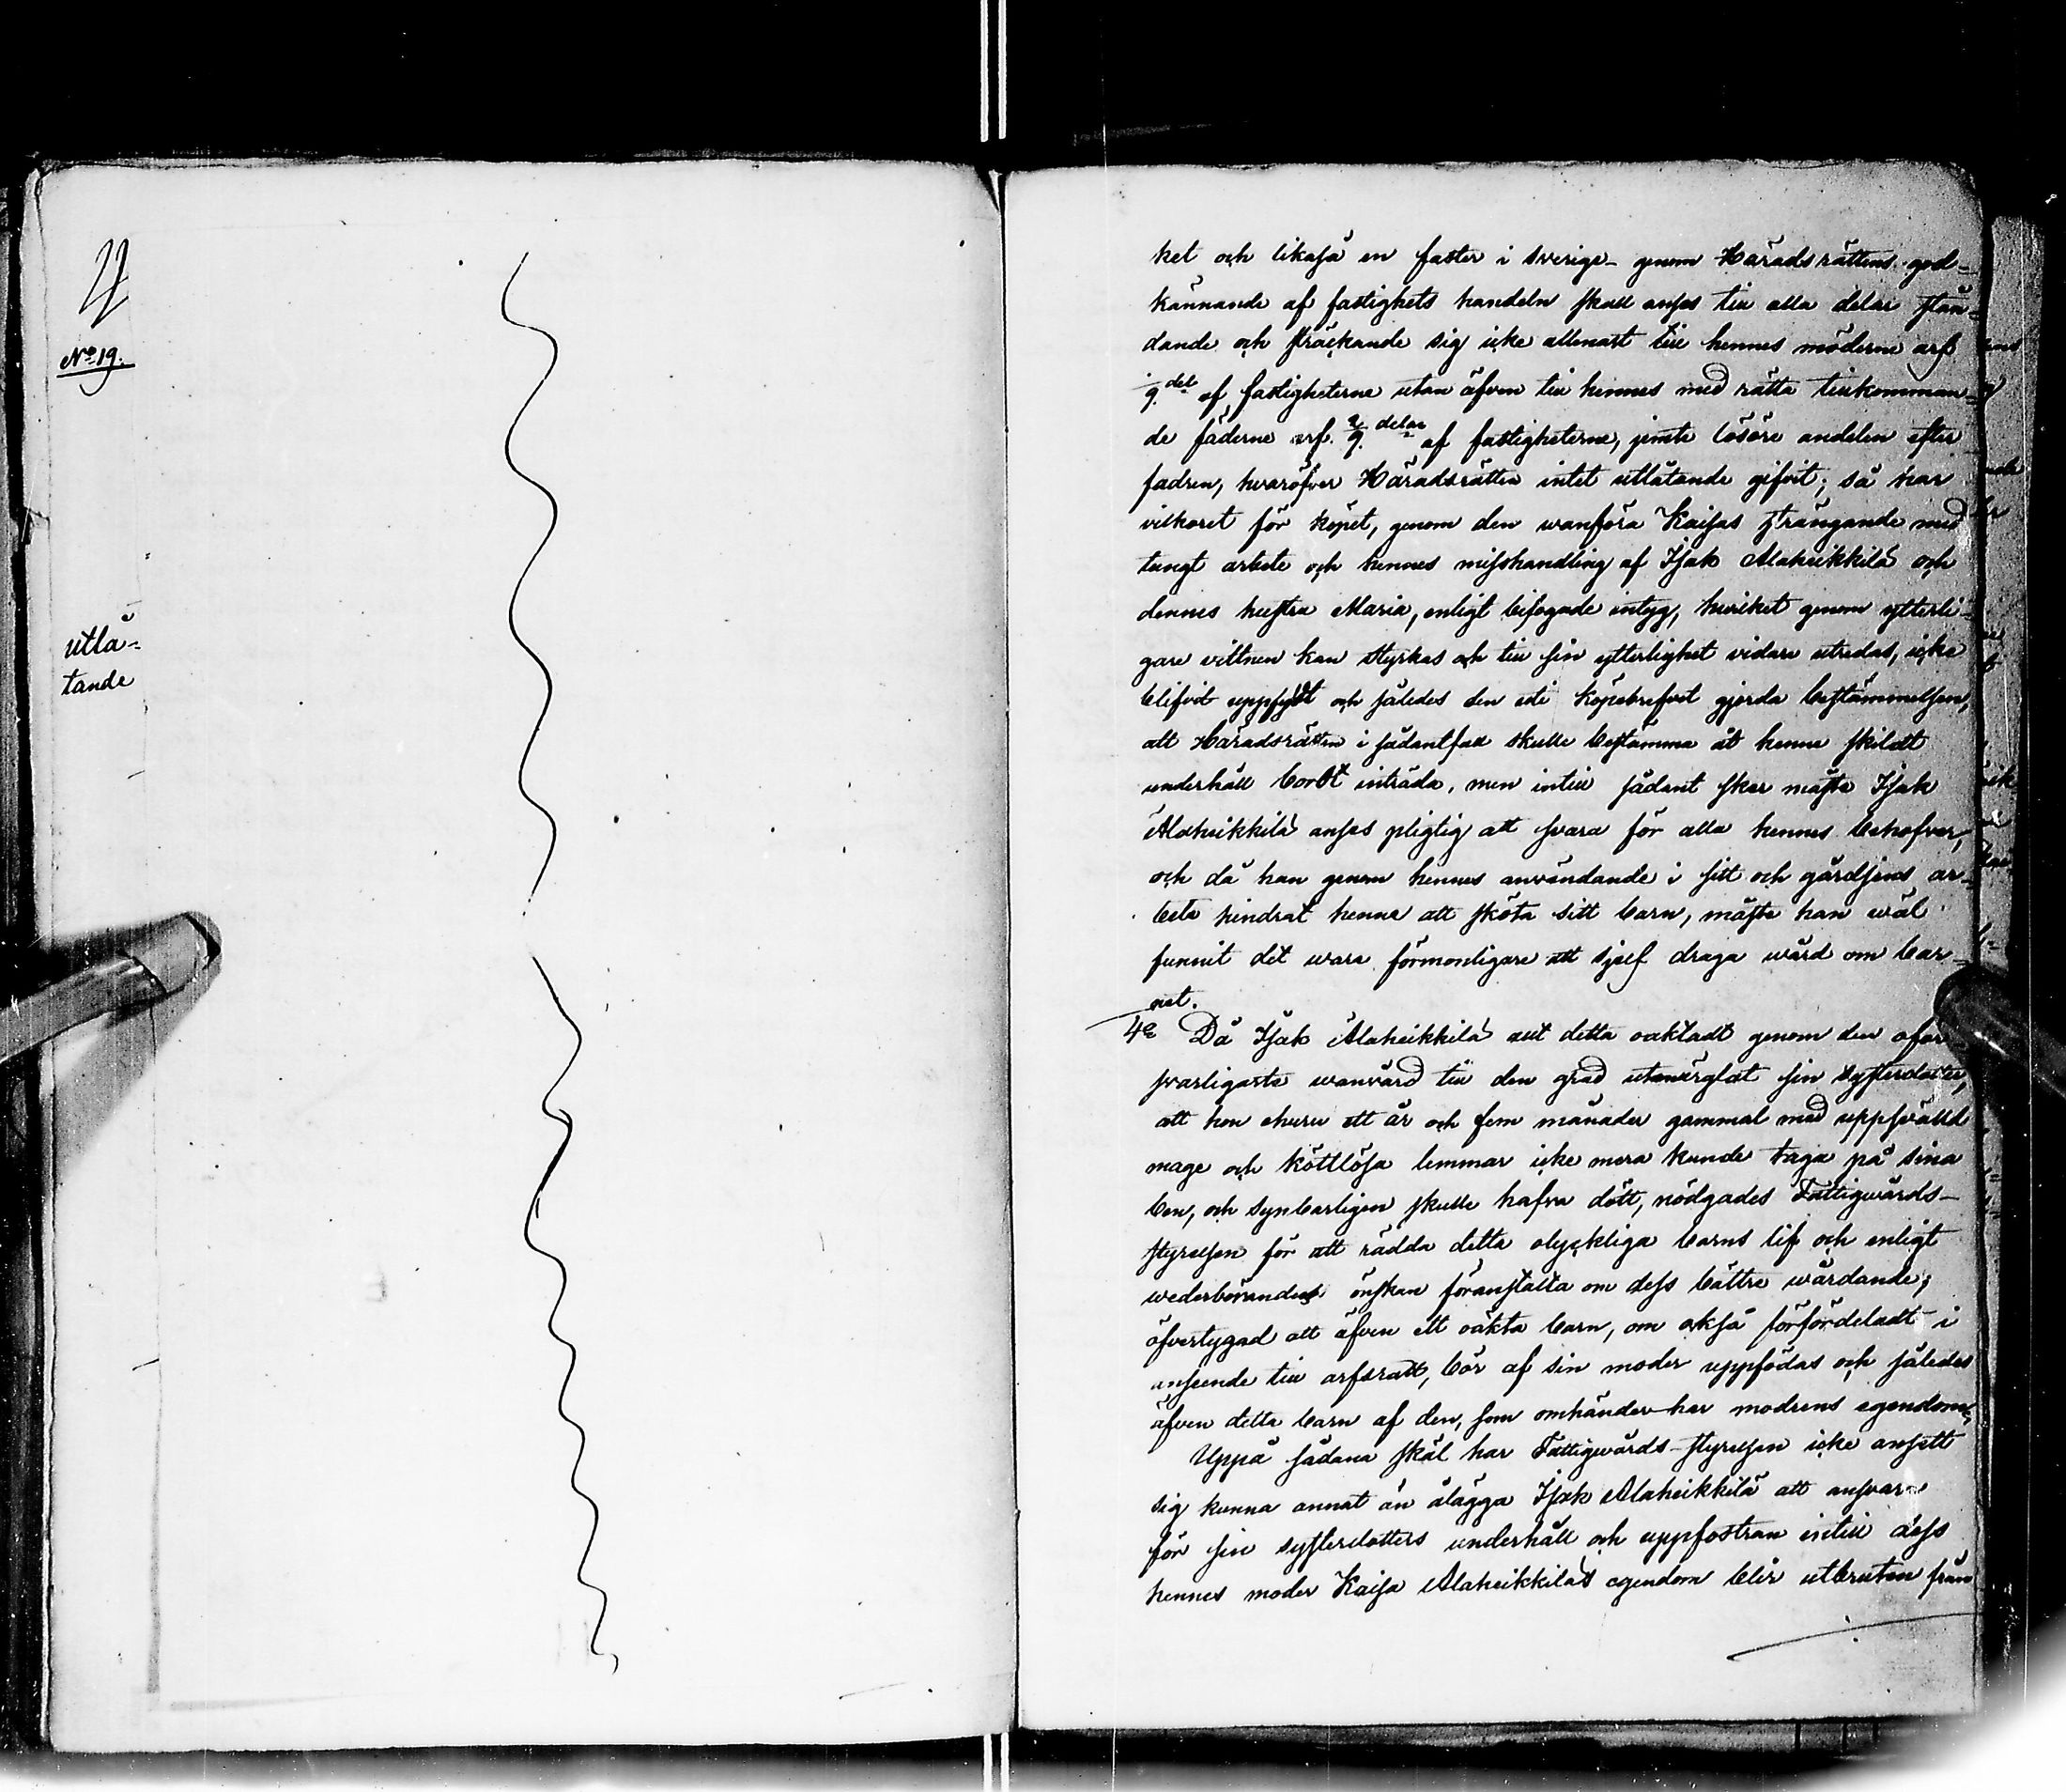 No 19.
utlå-
tande
ket och likaså en faster i Sverige genom Häradsrättens god-
kännande af fastighets handeln skall anses till alla delar stån-
dande och sträckande sig icke allenast till hennes möderne arf
9.del af fastigheterne utan äfven till hennes med rätta tillkomman-
de fäderne arf 2/9.delar af fastigheterne, jemte lösöre andelen efter
fadren, hvaröfver Häradsrätten intet utlåtande gifvit; så har
vilkoret för köpet, genom den wanföra Kaisas strängande med
tungt arbete och hennes misshandling af Isak Alaheikkilä och
dennes hustru Maria, enligt bifogade intyg, hvilket genom ytterli-
gare vittnen kan styrkas och till sin ytterlighet vidare utredas, icke
blifvit uppfyldt och således den uti köpebrefvet gjorda bestämmelsen,
att Häradsrätten i sådantfall skulle bestämma åt henne skildt
underhåll bordt inträda, men intill sådant sker måste Isak
Alaheikkilä anses pligtig att svara för alla hennes behofver,
och då han genom hennes användande i sitt och gårdsens ar-
bete hindrat henne att sköta sitt barn, måste han wäl
funnit det wara förmonligare att sjelf draga wård om bar-
net.
4e Då Isak Alaheikkilä allt detta oaktadt genom den oför
svarligaste wanvård till den grad utmärglat sin systerdotter,
att hon ehuru ett år och fem månader gammal med uppsvälld
mage och köttlösa lemmar icke mera kunde taga på sina
ben, och synbarligen skulle hafva dött, nödgades Fattigwårds-
styrelsen för att rädda detta olyckliga barns lif och enligt
wederbörandes önskan föranstalta om dess bättre wårdande;
öfvertygad att äfven ett oäkta barn, om också förfördeladt i
anseende till arfsrätt, bör af sin moder uppfödas och således
äfven detta barn af den, som omhänder har modrens egendom,
Uppå sådana skäl har Fattigwårds-styrelsen icke ansett
sig kunna annat än ålägga Isak Alaheikkilä att ansvara
för sin systerdotters underhåll och uppfostran intill dess
hennes moder Kaisa Alaheikkiläs egendom blir utbruten från